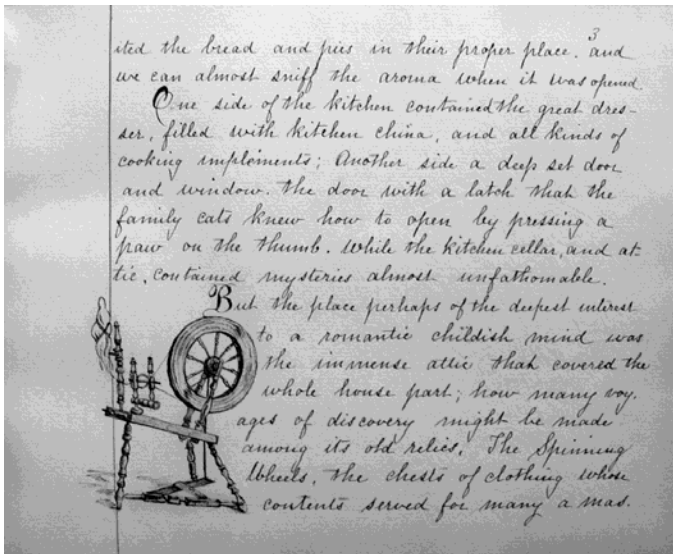 3
ited the bread and pies in their proper place. and
we can almost sniff the aroma when it was opened.
One side of the kitchen contained the great dres-
ser, filled with kitchen china, and all kinds of
cooking implements; Another side a deep set door
and window. the door with a latch that the
family cats knew how to open by pressing a
paw on the thumb. While the kitchen cellar, and at-
tic, contained mysteries almost unfathomable.
But the place perhaps of the deepest interest
to a romantic childish mind was
the immense attic that covered the
whole house part; how many voy.
ages of discovery might be made
among its old relics, The Spinning
Wheels, the chests of clothing whose
contents served for many a mas.